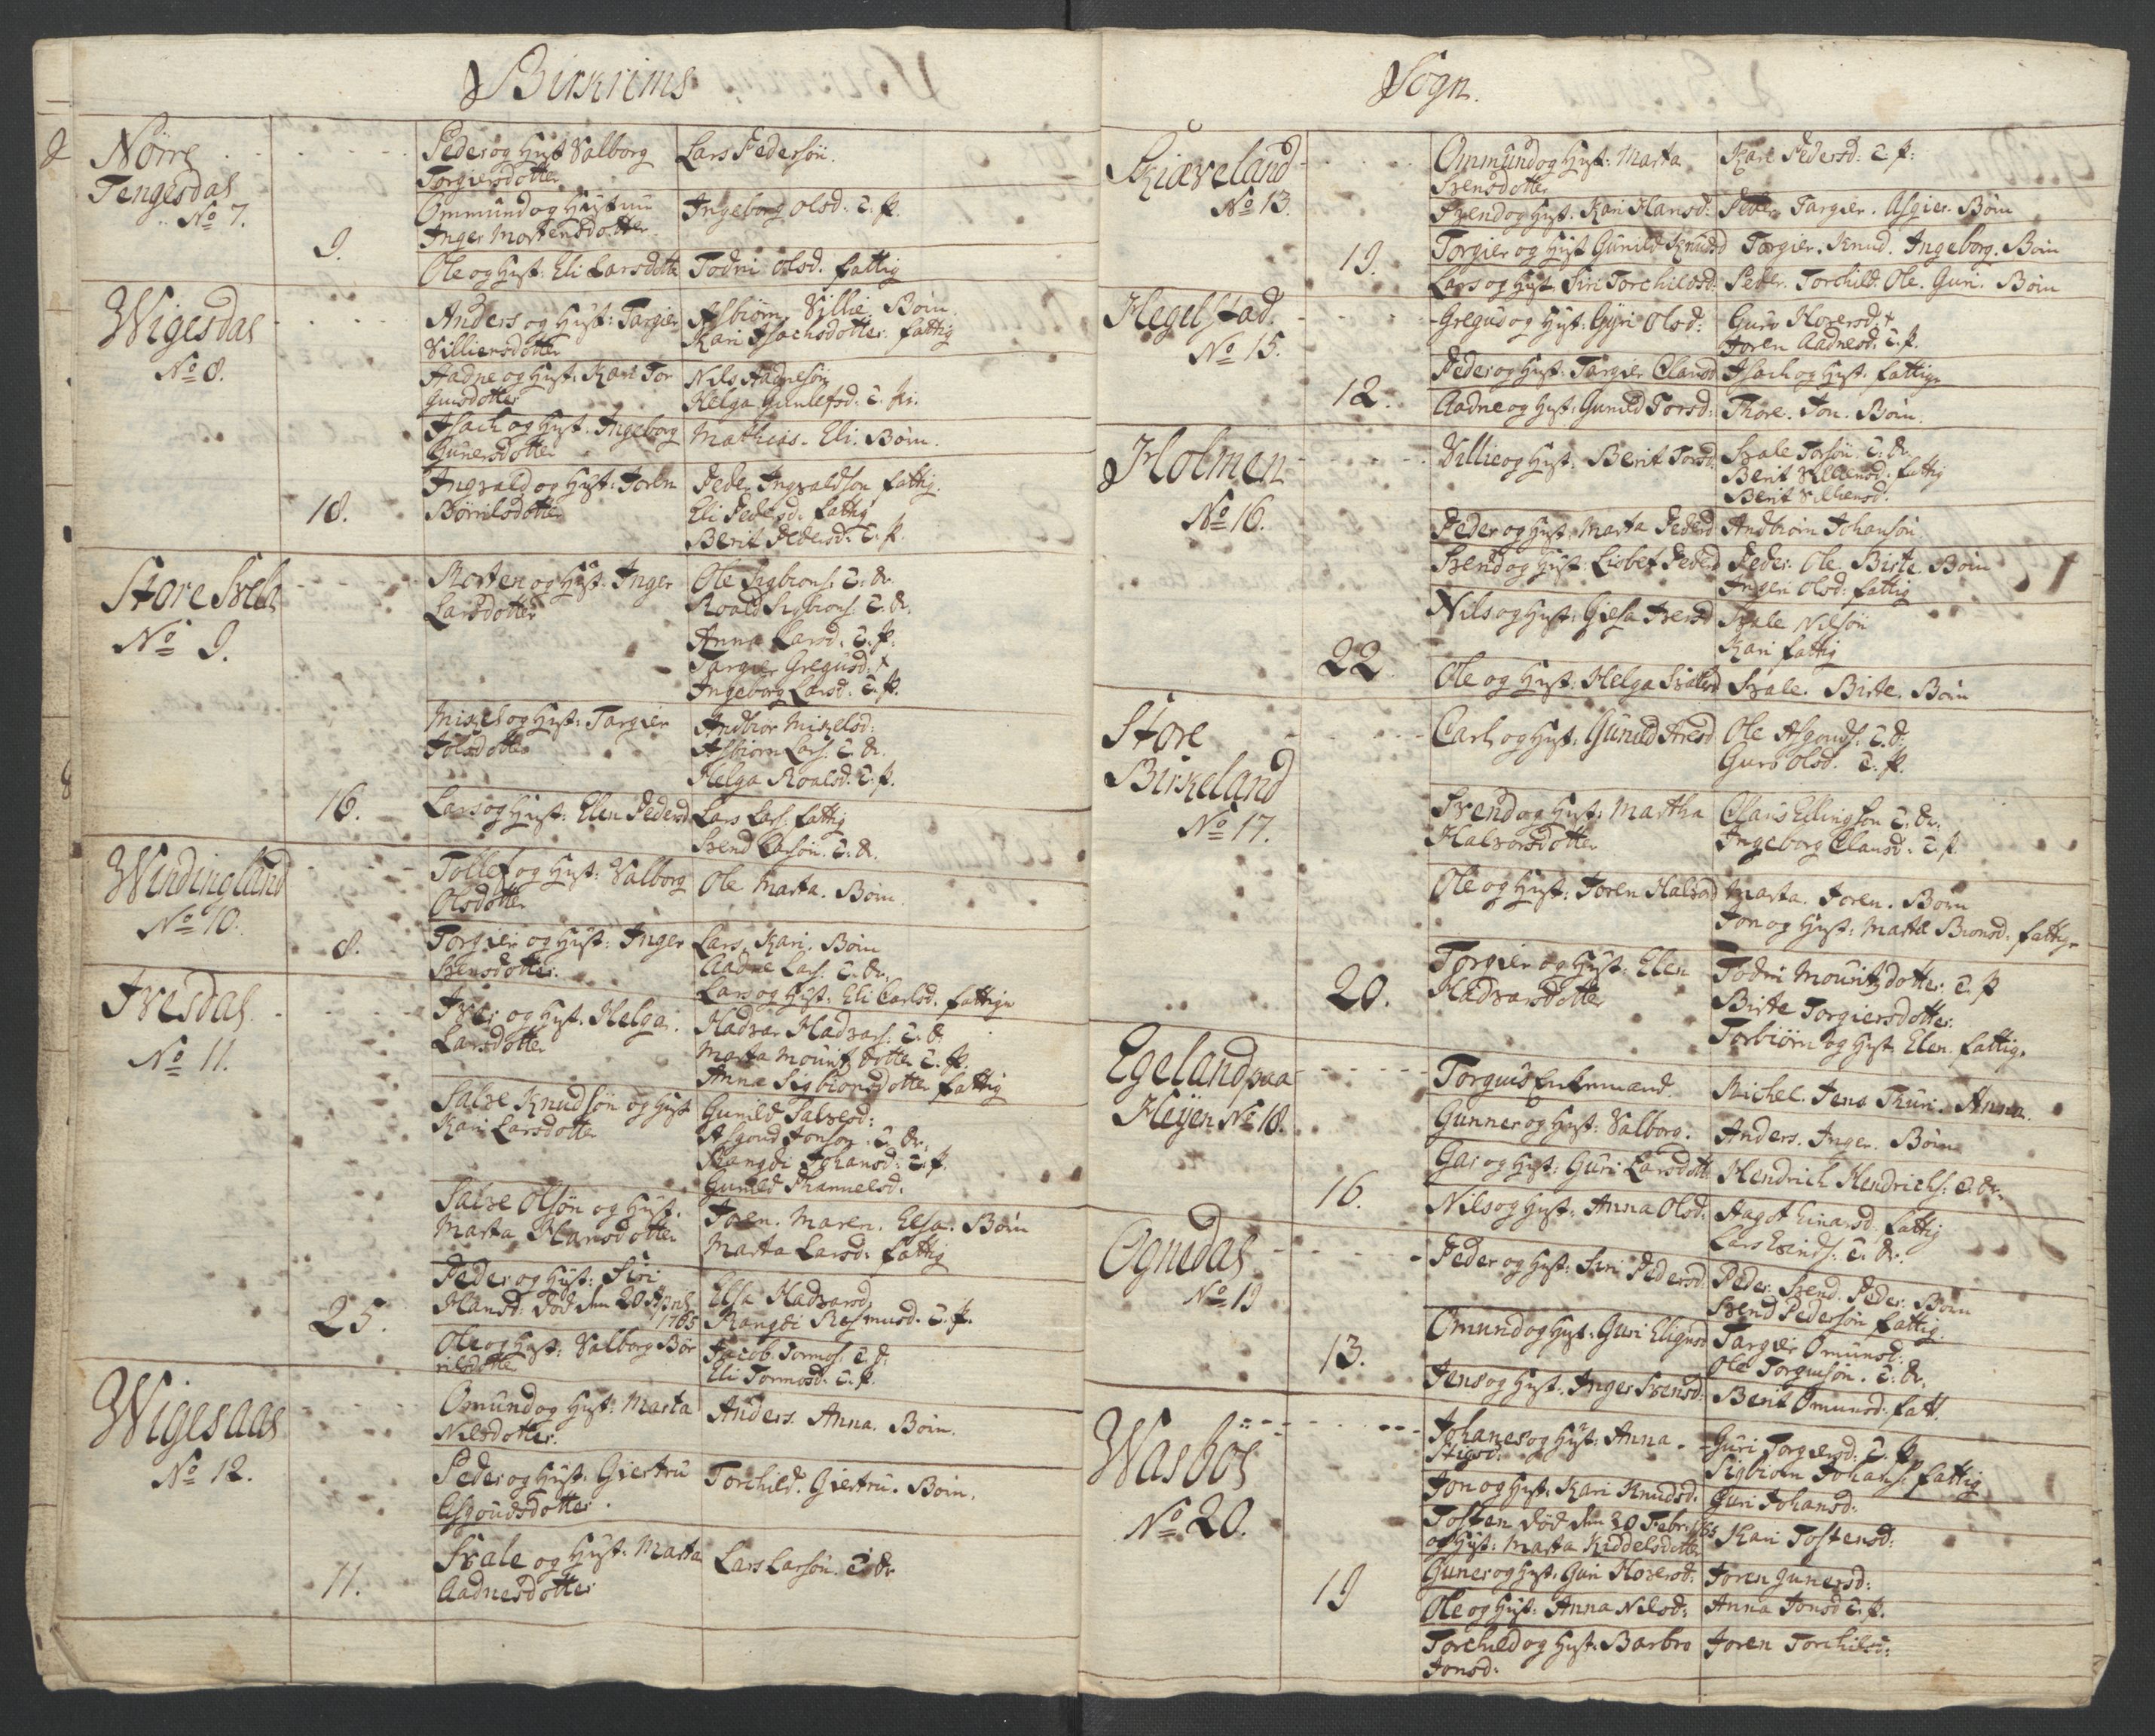 Birkrims
Nörre
Tengesdal
No 7.
9.
Peder og Hust Valborg
Torgiersdotter
Lars Pedersön.
Ommund og Hustrue
Inger Mortensdotter
Ingeborg Olsd: T. P.
Ole og Hust: Eli Larsdotte
Todni Olsd. fattig
Wigesdal
No 8.
18.
Anders og Hust: Targier
Villiersdotter
Asbiörn. Villie. Börn.
Kari Isachsdotter. fattig
Aadne og Hust: Kari Tor
gusdotter
Nils Aadnesön
Helga Gunlefsd: T. Pi.
Isach og Hust. Ingeborg
Gunersdotter
Mathias. Eli. Börn.
Ingvald og Hust: Joren
Börrilsdotter
Peder Ingvaldson fattig.
Eli Pedersd: fattig
Berit Pedersd: T. P.
Store Svela
No 9.
16.
Morten og Hust: Inger
Larsdotter
Ole Sigbions: T: dr.
Roald Sigbions: T. dr.
Anna Larsd: T. P.
Targier Gregusd:
Ingeborg Larsd: T. P.
Mikel og Hust: Targier
Jolsdotter
Andbior Mikelsd:
Asbiorn Lars: T. dr.
Helga Roalsd: T. P.
Lars og Hust: Elen Pedersd
Lars Lars: fattig
Svend Larsön. T. dr.
Windingland
No 10.
8.
Tollef og Hust: Valborg
Olsdotter
Ole. Marta. Börn.
Torgier og Hust: Inger
Svensdotter.
Lars. Kari. Börn
Aadne Lars: T. dr.
Lars og Hust: Eli Carlsd. fattige
Ivesdal
No 11.
25.
Iver og Hust. Helga.
Larsdotter
Hadvar Hadvars: T. dr
Marta Mouritzdotter T. P.
Anna Sigbiorsdotter fattig
Salve Knudsön og Hust
Kari Larsdotter
Gunild Salvesd:
Asgoud Jonson. T. dr.
Rangdi Johansd: T. P.
Gunild Thamuelsd.
Salve Olsön og Hust.
Marta Hansdotter
Joren. Maren. Elsa. Börn
Marta Larsd: fattig
Peder og Hust: Siri
Hansd: död den 20 April
1765
Elsa Hadvarsd.
Rangdi Rasmusd. T. P.
Ole og Hust: Valborg Bör
rilsdotter
Jacob Tormos: T. d:
Eli Tormosd: T. P.
Wigesaas
No 12.
11.
Omund og Hust: Marta
Nilsdotter.
Anders. Anna. Börn.
Peder og Hust: Giertru
Asgoudsdotter.
Torchild. Giertru. Börn.
Svale og Hust: Marta
Aadnesdotter
Lars Larsön. T dr
Sogn.
Skiæveland
No 13.
19.
Ommund og Hust: Marta
Svensdotter
Kari Pedersd: T. P:
Svend og Hust. Kari Hansd:
Peder. Targier. Asgier. Börn
Torgier og Hust Gunild Knudsd
Torgier. Knud. Ingeborg. Börn
Lars og Hust Siri Torchildsd.
Peder. Torchild. Ole. Guri. Börn
Hegelstad.
No 15.
12.
Gregus og Hust: Gyri Olsd:
Guro Hoversd
Joren Aadnesd: T. P.
Peder og Hust: Targier Clausd
Isach og Hust. fattige
Aadne og Hust: Gunild Torsd:
Thore. Jon. Börn.
Holmen
No 16.
22.
Villie og Hust: Berit Torsd.
Svale Torsön: T: dr.
Berit Villiensd: fattig
Berit Villiensd.
Peder og Hust: Marta Pedersd
Andbiörn Johansön
Svend og Hust: Lisbet Pedersd
Peder. Ole. Birte. Börn
Ingeri Olsd: fattig
Nils og Hust: Giesa Iversd
Svale Nilsön
Kari fattig
Ole og Hust: Helga Svalesd
Svale. Birte. Börn
Store
Birkeland
No 17.
20.
Carl og Hust: Gunild Aresd
Ole Asgouds: T. d:
Guro Olsd. T. P.
Svend og Hust: Martha
Halvorsdotter
Claus Ellingson T: dr.
Ingeborg Clausd: T. P.
Ole og Hust: Joren Halvorsd
Marta. Joren. Börn
Jon og Hust: Marta Bionsd: fattige
Torgier og Hust: Elen
Hadvarsdotter
Todni Mouritzdotter: T. P
Birte Torgiersdotter
Torbiörn og Hust. Elen. fattig.
Egeland paa
Heyen No 18.
16.
Torguis Enkemand.
Michel. Jena Thuri. Anna.
Gunner og Hust: Valborg.
Anders. Inger. Börn
Gar og Hust: Guri Larsdott
Hendrich Hendrichs: T. dr.
Nils og Hust: Anna Olsd:
Aagot Einarsd. fattig
Lars Evinds: T: dr:
Ognedal
No 19
13.
Peder og Hust: Siri Pedersd
Peder. Svend. Peder. Börn
Svend Pedersön fattig.
Omund og Hust: Guri Eligusd
Targier Omunsd:
Ole Torguisön. T. dr.
Jens og Hust. Inger Svensd:
Berit Omunsd: fatt.
Wasböe
No 20.
19
Johanes og Hust: Anna
Stigsd:
Guri Torgiersd: T. P.
Sigbiörn Johans: fattig
Jon og Hust: Kari Knudsd:
Guri Johansd:
Tosten död den 20 Febr: 1765
og Hust: Marta Kiddelsdotter
Kari Tostensd:
Guner og Hust. Guri Hoversd:
Joren Gunersd:
Ole og Hust: Anna Nilsd:
Anna Jonsd T. P.
Torchild og Hust: Barbro
Jonsd:
Joren Torchilsd: